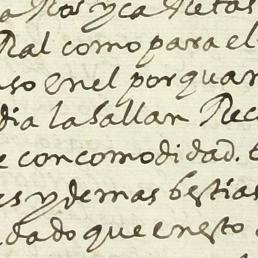 a Ros y ca Retas
Ral como para el
uso en el por quan
dia la hallan Rec
e con comodidad.
es y demas bestias
dado que en esto